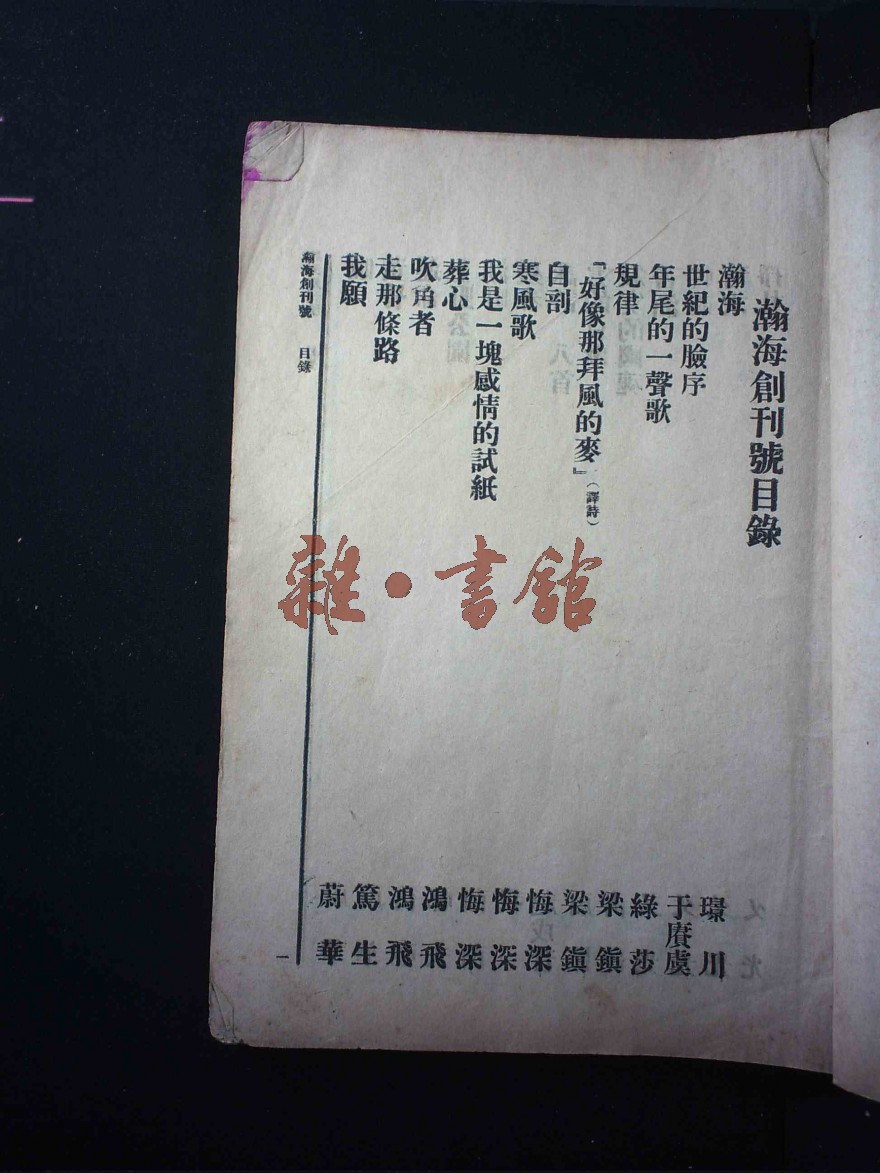 瀚海創刊號目錄
瀚海 璟川
世紀的臉序 于賡虞
年尾的一聲歌 綠莎
規律 梁鎮
「好像那拜風的麥」（譯詩） 梁鎮
自剖 悔深
寒風歌 悔深
我是一塊感情的試紙 悔深
葬心 鴻飛
吹角者 鴻飛
走那條路 篤生
我願 蔚華
瀚海創刊號 目錄
一
雜·書館